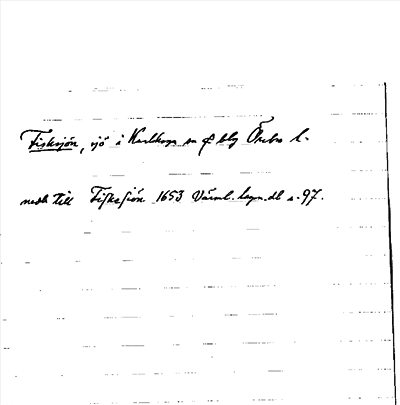 Fisksjön, sjö i Karlskoga sn o blg Örebro l.
neds till Fiskesiön 1653 Värml. lagn. dl s. 97.